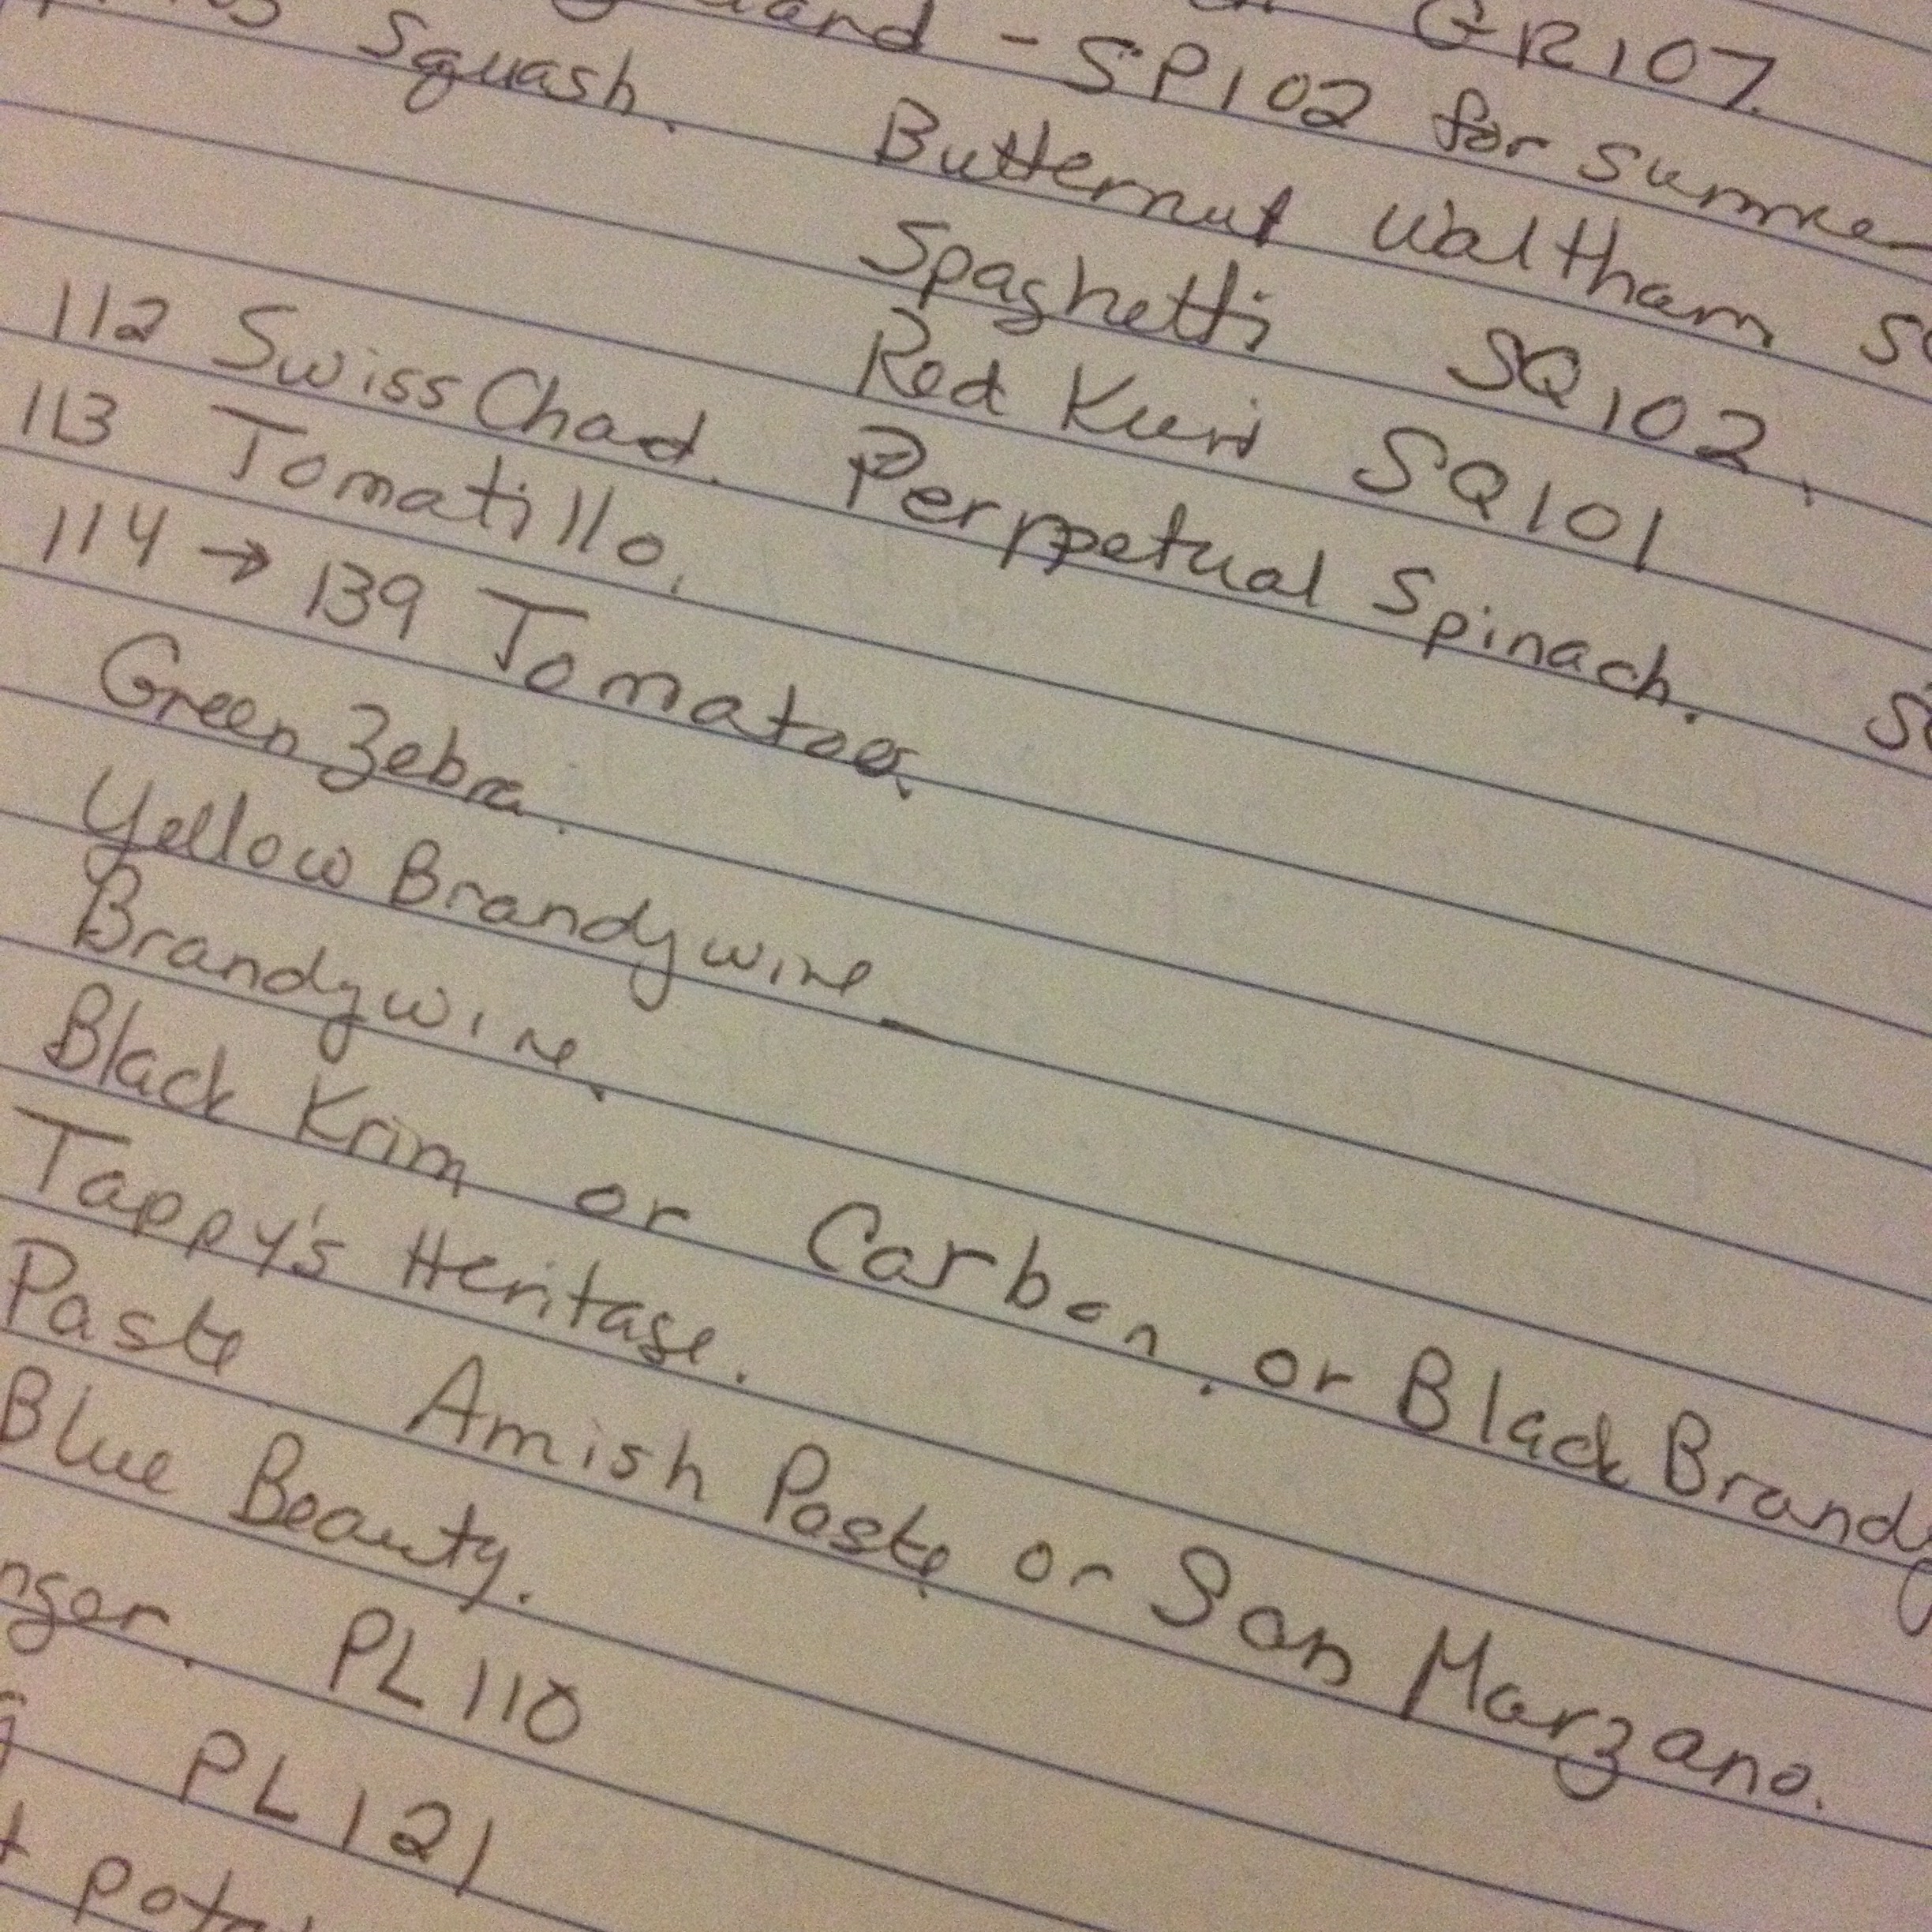 GR107
- SP102 for summer
Squash. Butternut Waltham
Spaghetti SQ102.
Red Kuri SQ101
112 Swiss Chad. Perpetual Spinach.
113 Tomatillo.
114 → 139 Tomatoes
Green Zebra.
Yellow Brandywine
Brandywine
Black Krim or Carbon. or Black Brandy
Tappy's Heritage.
Paste Amish Paste or San Marzano.
Blue Beauty.
PL110
PL121